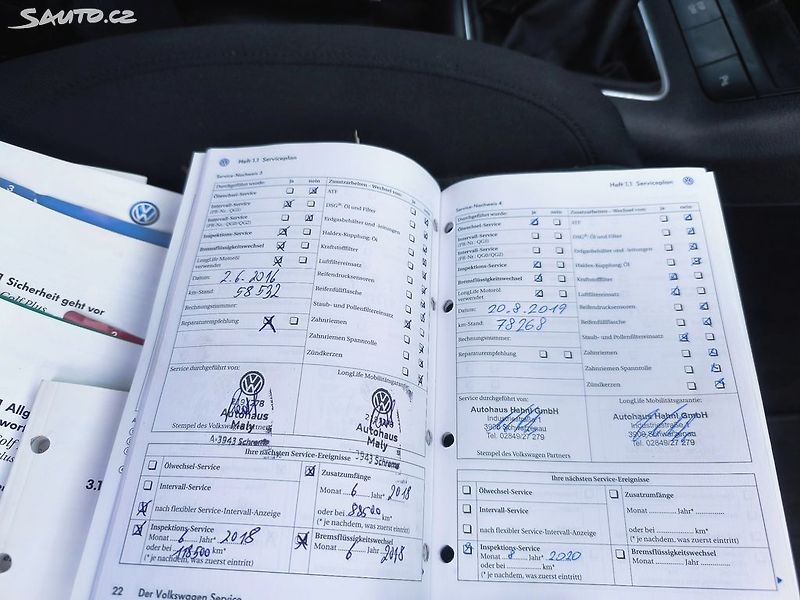 SAUTO.CZ
1 Sicherheit geht vor
Golf Plus
3.1
Heft 1.1 Serviceplan
Service-Nachweis 3
Durchgeführt wurde: ja nein
Ölwechsel-Service
Intervall-Service
(PR-Nr.: QG1)
Intervall-Service
(PR-Nr.: QG0/QG2)
Inspektions-Service
Bremsflüssigkeitswechsel
LongLife Motoröl
verwendet
Datum: 2.6.2016
km-Stand: 58532
Rechnungsnummer:
Reparaturempfehlung
Zusatzarbeiten - Wechsel von: ja nein
ATF
DSG®-Öl und Filter
Erdgasbehälter und -leitungen
Haldex-Kupplung: Öl
Kraftstofffilter
Luftfiltereinsatz
Reifendrucksensoren
Reifenfüllflasche
Staub- und Pollenfiltereinsatz
Zahnriemen
Zahnriemen Spannrolle
Zündkerzen
Service durchgeführt von:
LongLife Mobilitätsgarantie:
Autohaus
Maly
A-3943 Schrems
Stempel des Volkswagen Partners
Autohaus
Maly
Ihre nächsten Service-Ereignisse
Ölwechsel-Service
Intervall-Service
nach flexibler Service-Intervall-Anzeige
Inspektions-Service
Monat 6 Jahr* 2018
oder bei 118500 km*
(* je nachdem, was zuerst eintritt)
Zusatzumfänge
Monat 6 Jahr* 2018
oder bei 88500 km*
(* je nachdem, was zuerst eintritt)
Bremsflüssigkeitswechsel
Monat 6 Jahr 2018
22 Der Volkswagen Service
Heft 1.1 Serviceplan
Service-Nachweis 4
Durchgeführt wurde: ja nein
Ölwechsel-Service
Intervall-Service
(PR-Nr.: QG1)
Intervall-Service
(PR-Nr.: QG0/QG2)
Inspektions-Service
Bremsflüssigkeitswechsel
LongLife Motoröl
verwendet
Datum: 20.8.2019
km-Stand: 78268
Rechnungsnummer:
Reparaturempfehlung
Zusatzarbeiten - Wechsel von: ja nein
ATF
DSG®-Öl und Filter
Erdgasbehälter und -leitungen
Haldex-Kupplung: Öl
Kraftstofffilter
Luftfiltereinsatz
Reifendrucksensoren
Reifenfüllflasche
Staub- und Pollenfiltereinsatz
Zahnriemen
Zahnriemen Spannrolle
Zündkerzen
Service durchgeführt von:
LongLife Mobilitätsgarantie:
Autohaus Hahnl GmbH
Industriestraße 1
Tel. 02849/27 279
Stempel des Volkswagen Partners
Autohaus Hahnl GmbH
Industriestraße 1
3900 Schwarzenau
Tel. 02849/27 279
Ihre nächsten Service-Ereignisse
Ölwechsel-Service
Intervall-Service
nach flexibler Service-Intervall-Anzeige
Inspektions-Service
Monat 8 Jahr* 2020
oder bei km*
(* je nachdem, was zuerst eintritt)
Zusatzumfänge
Monat Jahr*
oder bei km*
(* je nachdem, was zuerst eintritt)
Bremsflüssigkeitswechsel
Monat Jahr